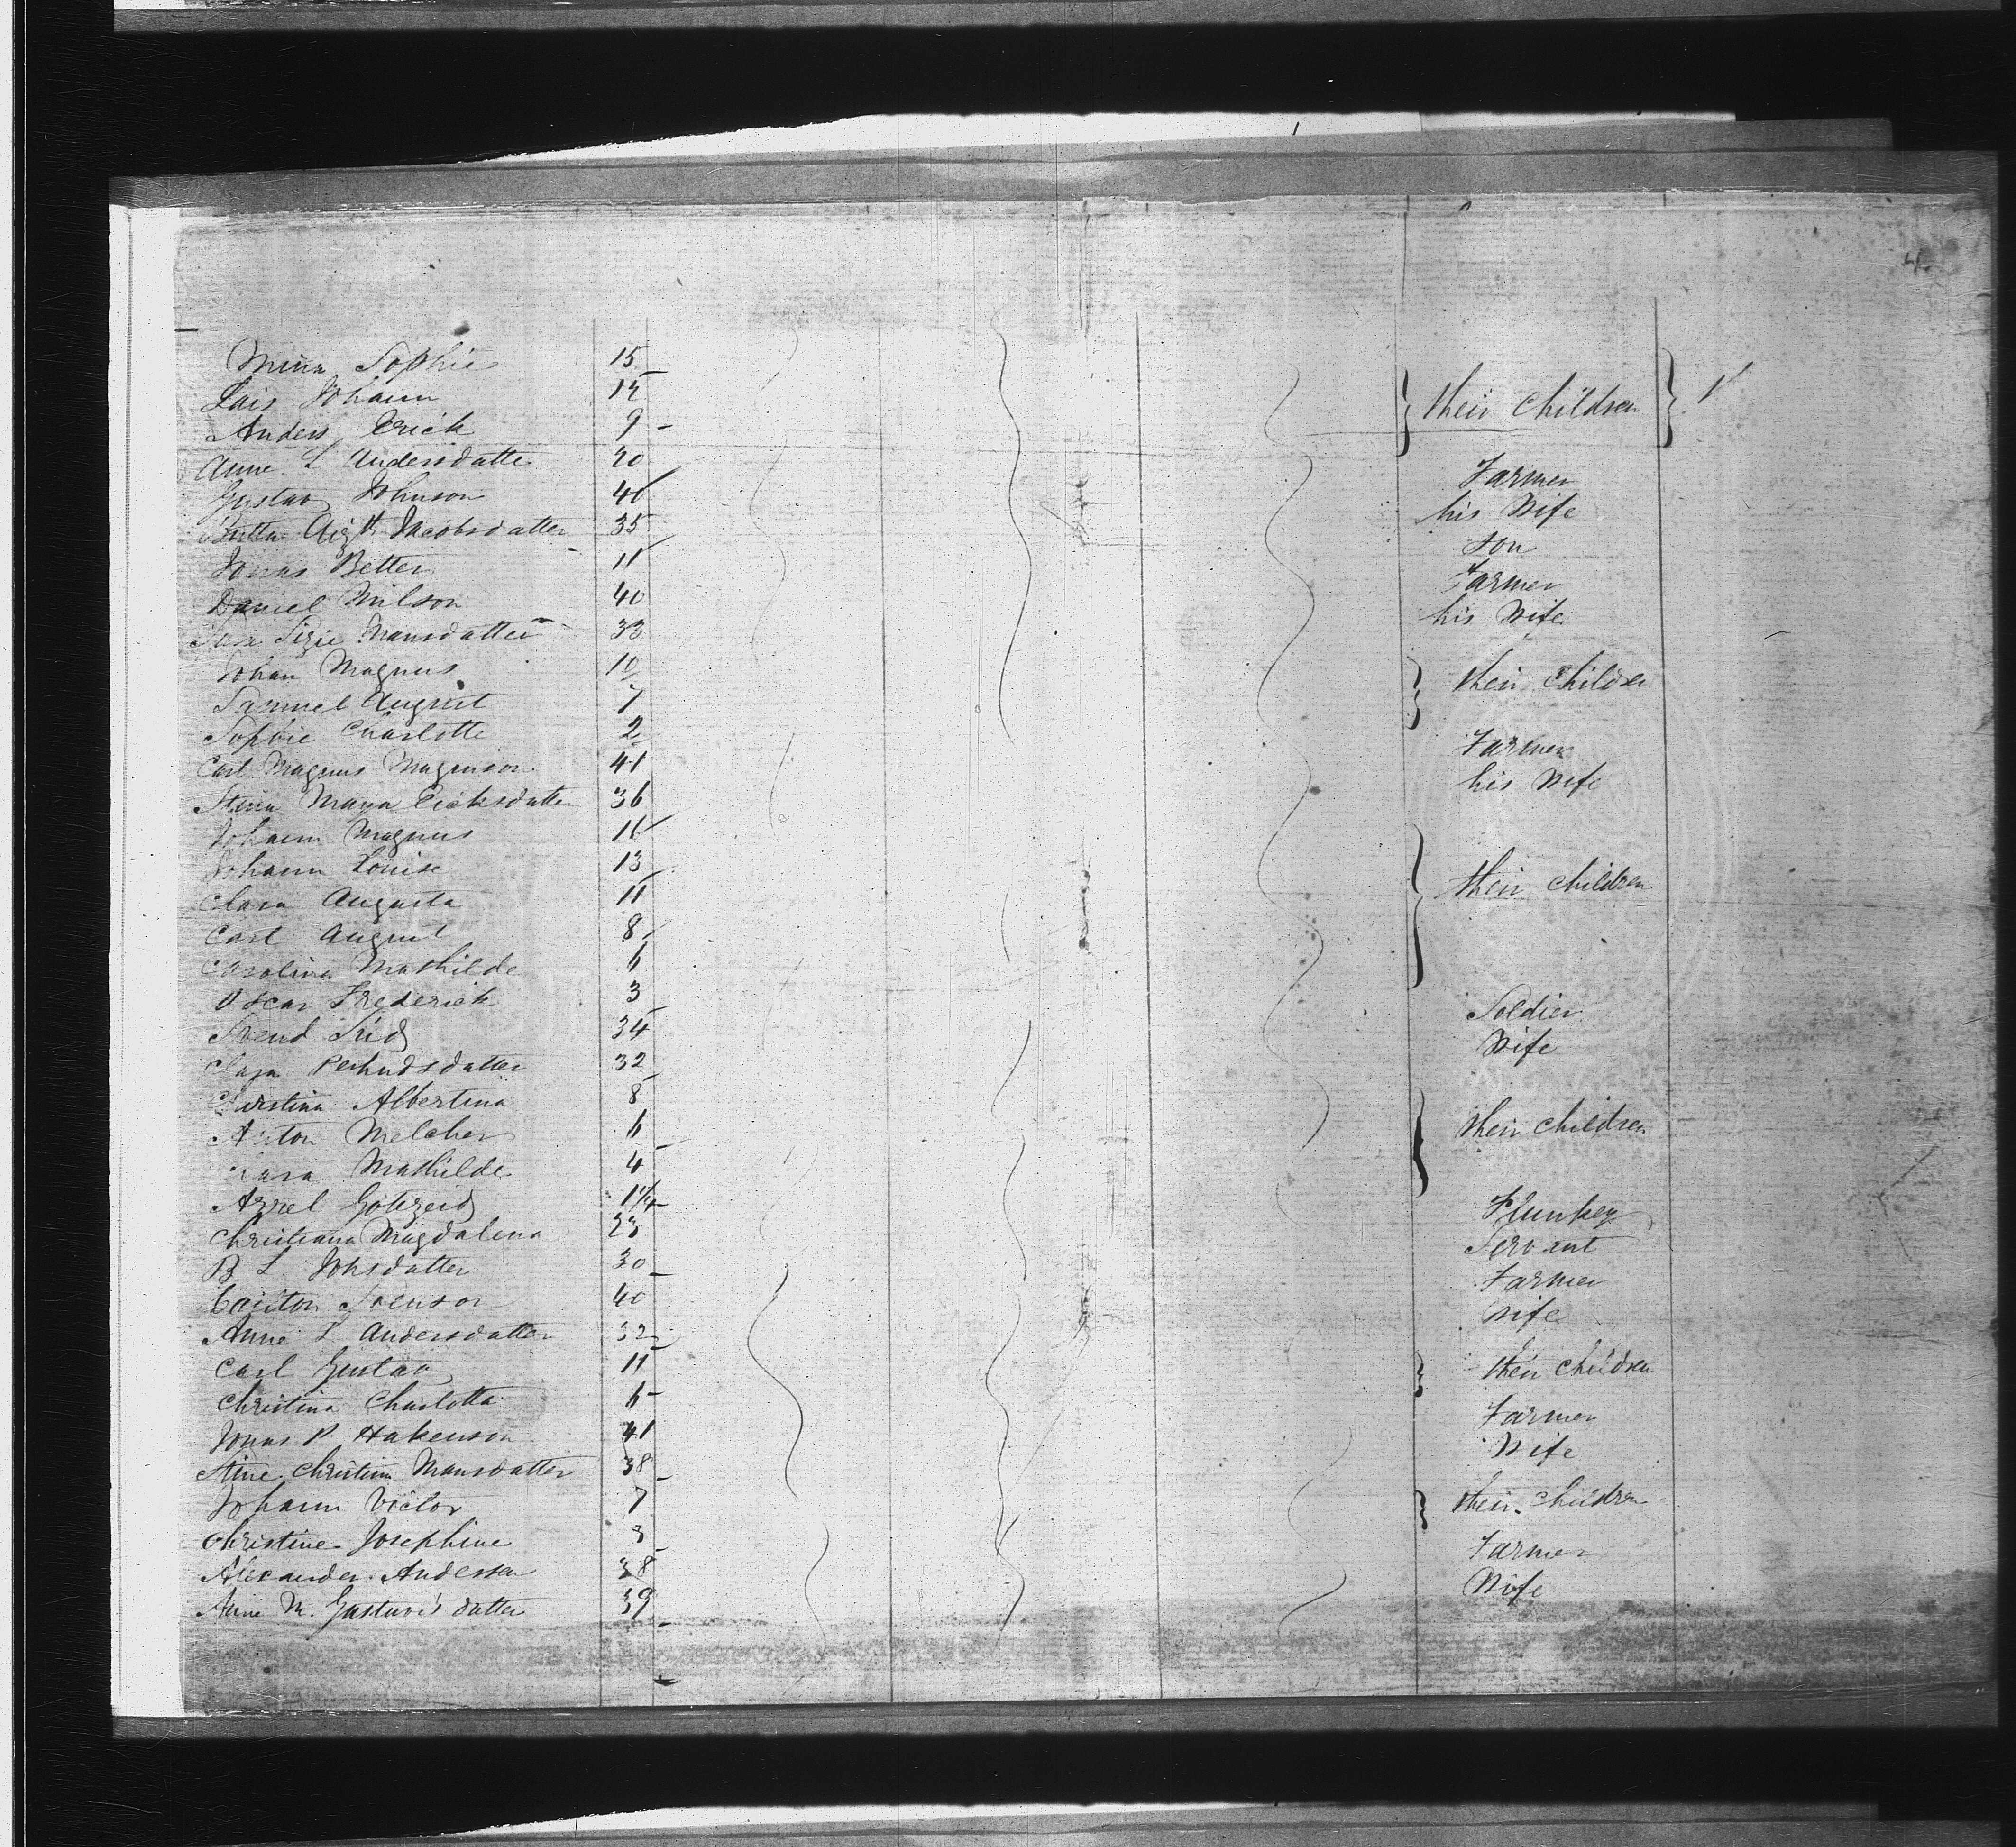 Mina Sophie 15
Lais Johann 12 their children
Anders Erick 9
Anne L Andersdatter 20
Gustav Johnson 41 Farmer
Britta Jacobsdatter 35 his Wife
Jonas Better 11 Son
Daniel Nilson 40 Farmer
Mansdatter 33 his Wife
Johan Magnus 10 their Childre
Samuel August 7
Sophie Charlotte 2
Carl Magnus Magnuson 41 Farmer
Stina Maria Ericksdatter 36 his Wife
Johann Magnus
Johann Louise 13
Clara Augusta 11 their children
Carl August 8
Carolina Mathilde 6
Oscar Frederick 3
Svend 34 Soldier
Clara 32 Wife
Christina Albertina 8
Anton Melcher 6 their children
Mathilde 4
Axel
Christiana Magdalena 23 Flunkey
B L Johsdatter 30 Servant
Svenson 40 Farmer
Anne L Andersdatter 32 Wife
Carl Gustav 11 their Children
Christina Charlotta 6
Jonas P Hakenson 41 Farmer
Stine Christina Mansdatter 38 Wife
Johann Victor 7 their Children
Christine Josephine 3
Alexander Anderson 38 Farmer
Anne M. Gustave's datter 39 Wife